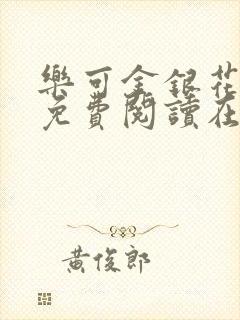 樂可金銀花
免費閱讀在
黃俊郎